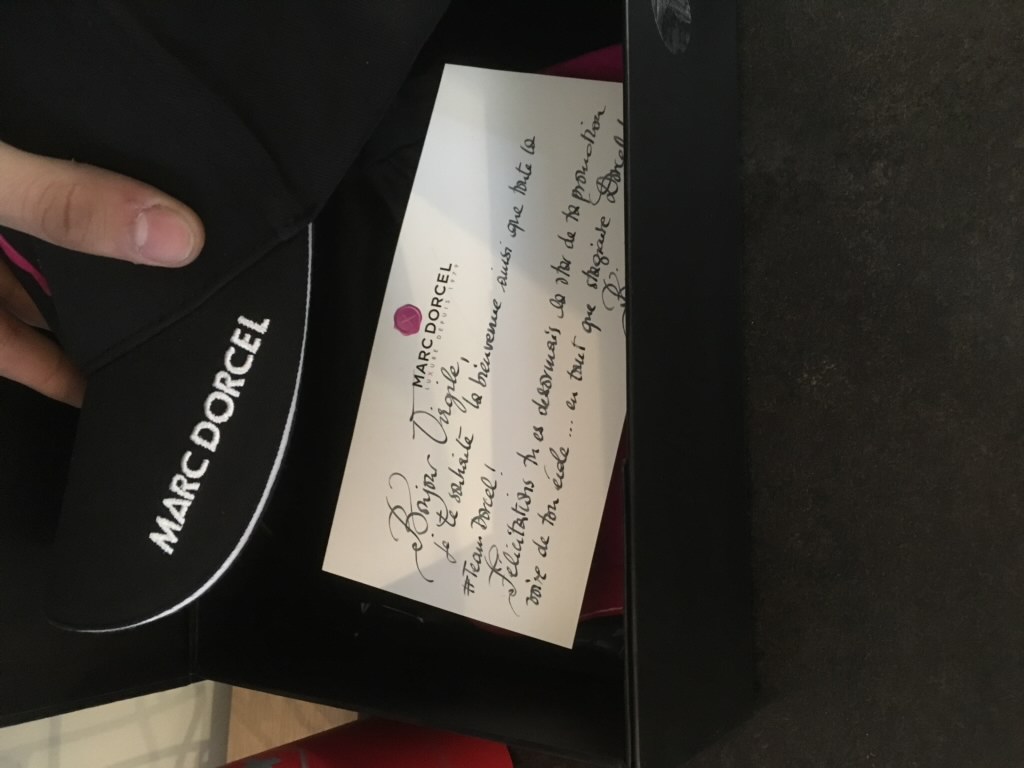 MARC DORCEL
MARC DORCEL
LUXURE DEPUIS 1979
Bonjour Virgile,
Je te souhaite la bienvenue ainsi que toute la
#Team Dorcel !
Félicitations tu es désormais la star de ta promotion
voire de ton école ... en tant que stagiaire Dorcel !